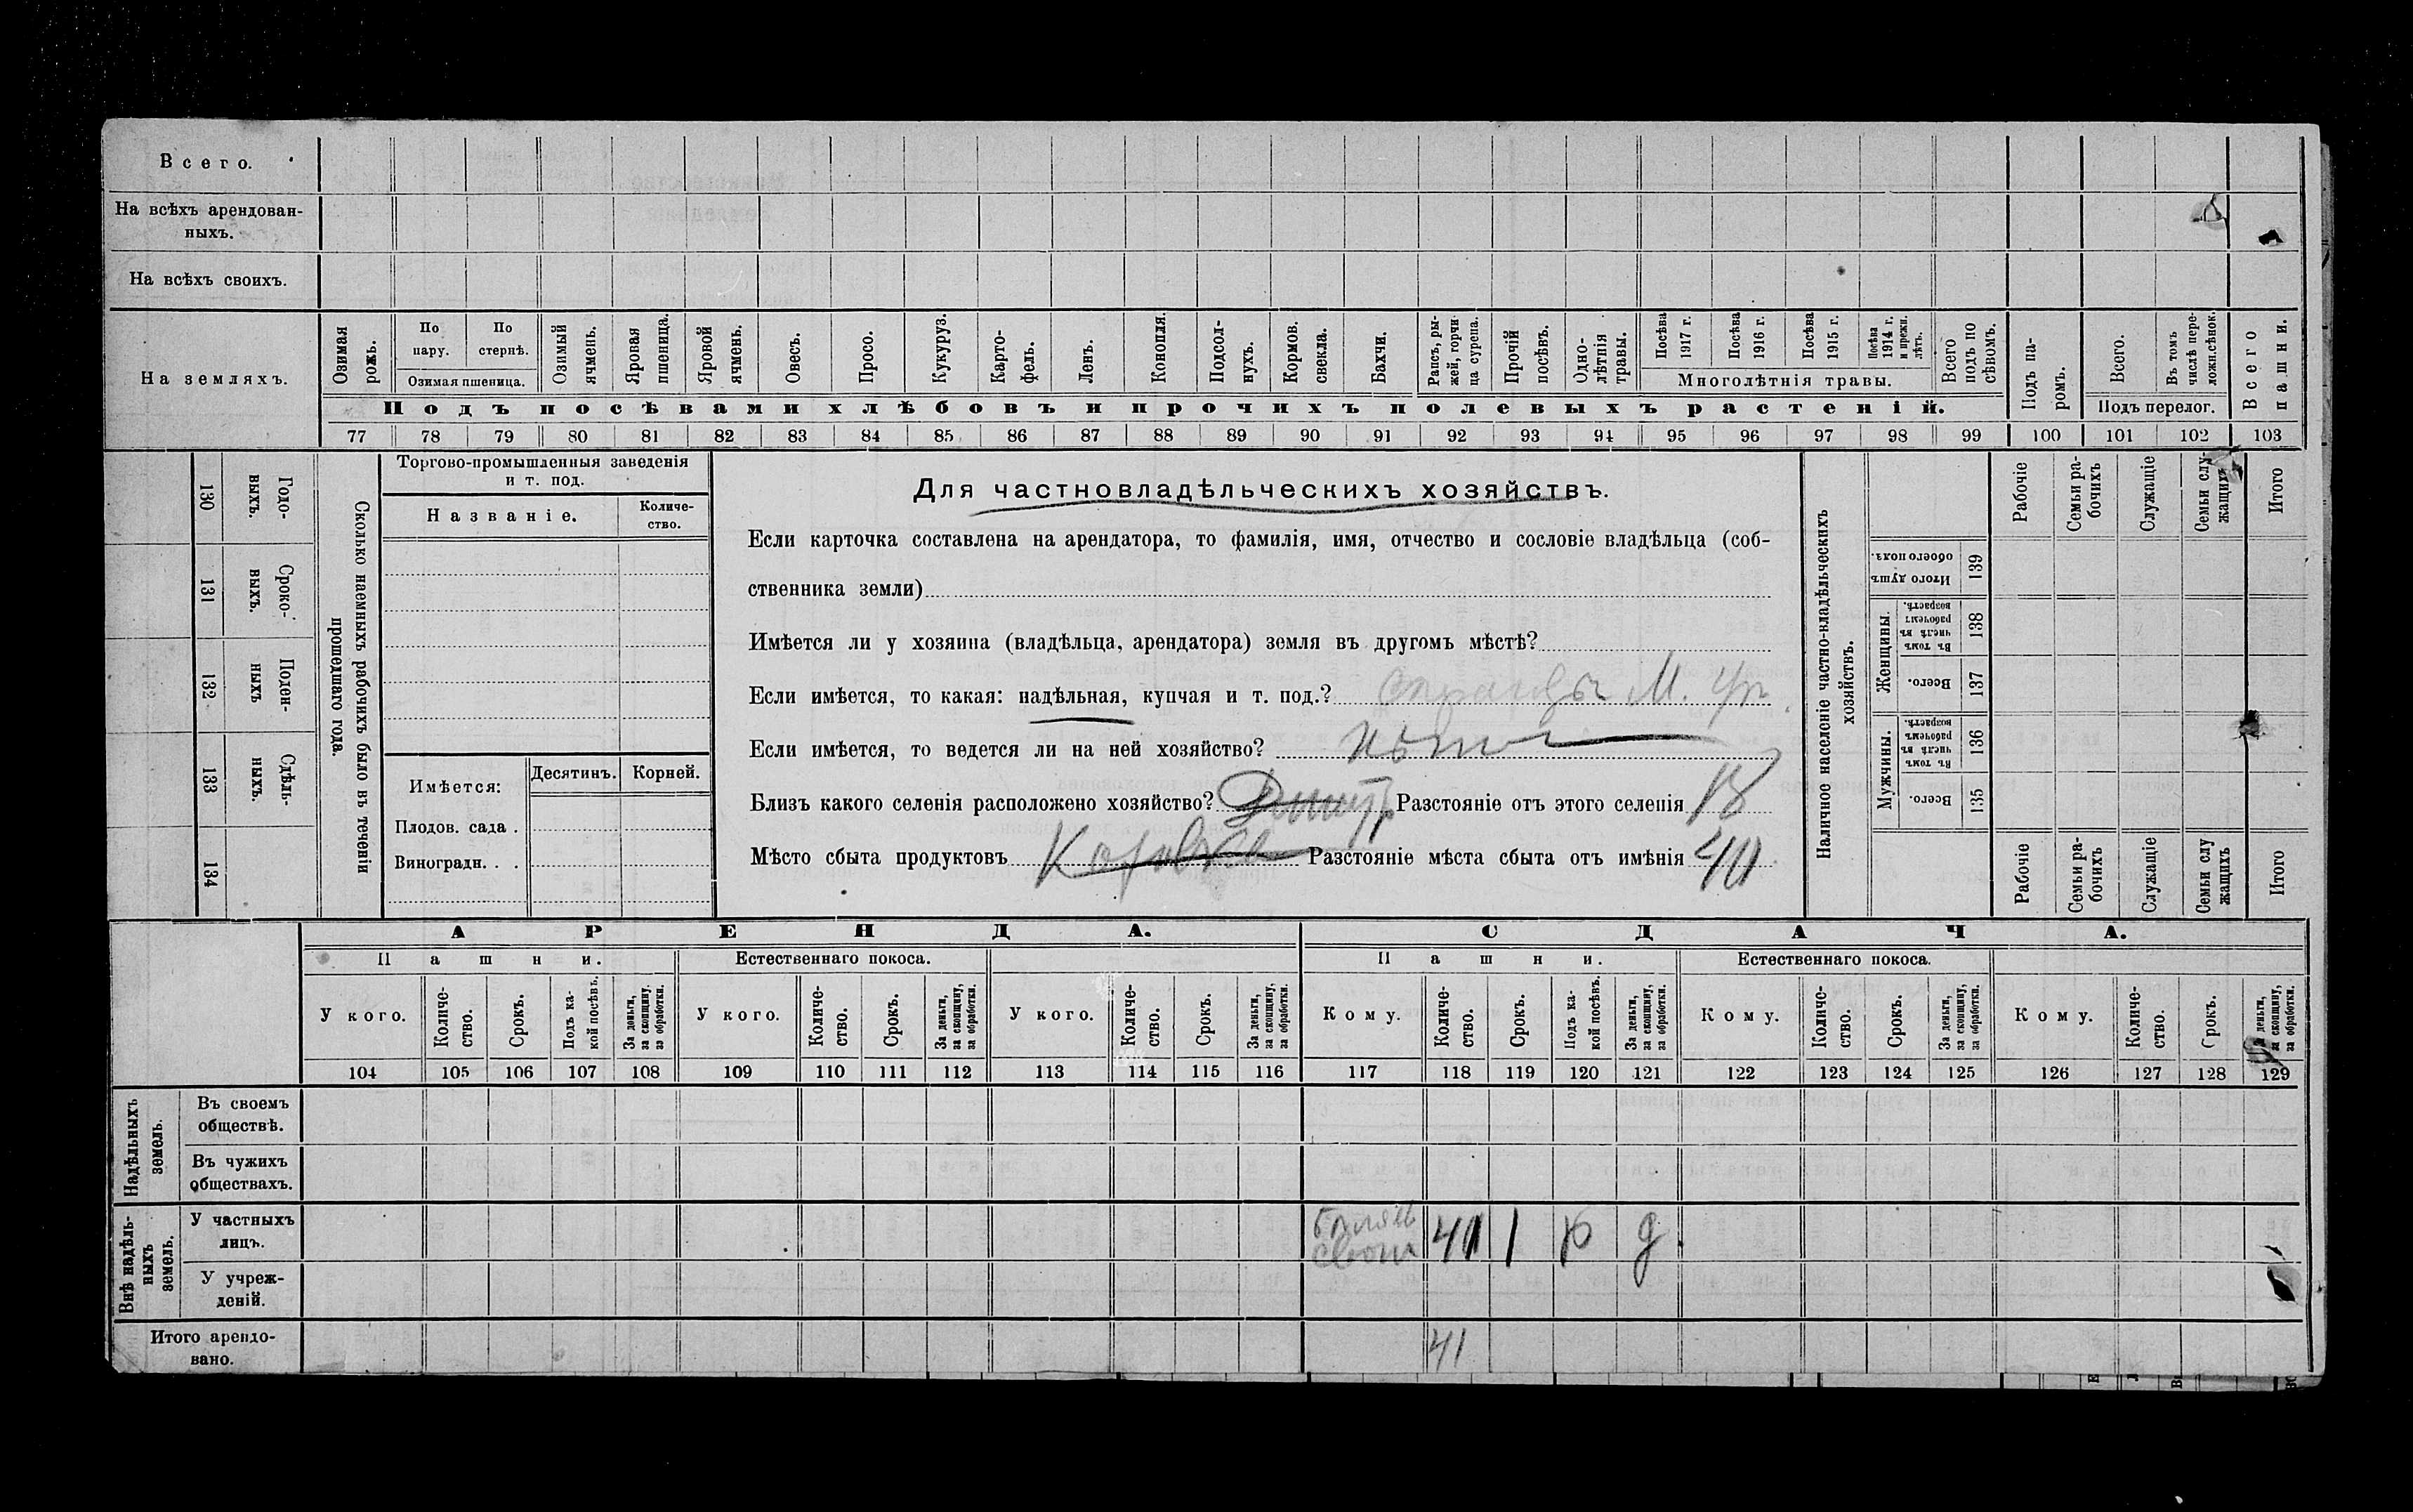 Всего.
На всѣхъ арендован-
ныхъ.
На всѣхъ своихъ.
На земляхъ.
Озимая рожь.
По пару.
По стернѣ.
Озимая пшеница.
Озимый ячмень.
Яровая пшеница.
Яровой ячмень.
Овесъ.
Просо.
Кукуруз.
Карто-
фель.
Ленъ.
Конопля.
Подсол-
нухъ.
Кормов.
свекла.
Бахчи.
Рапсъ, ры-
жей, горчи
ца сурепа.
Прочій
посѣвъ.
Одно-
лѣтнія
травы.
Посѣва
1917 г.
Посѣва
1916 г.
Посѣва
1915 г.
Посѣва
1914 г.
и прежн.
лѣтъ.
Многолѣтнія травы.
Всего
подъ по
сѣвомъ.
Подъ па-
ромъ.
Всего.
Въ томъ
числѣ пере-
ложн.сѣнок.
Подъ перелог.
Всего
пашни.
Подъ посѣвами хлѣбовъ и прочихъ полевыхъ растеній.
77 78 79 80 81 82 83 84 85 86 87 88 89 90 91 92 93 94 95 96 97 98 99 100 101 102 103
130
Годо-
выхъ.
131
Сроко-
выхъ.
132
Поден-
ныхъ
133
Сдѣль-
ныхъ.
134
Сколько наемныхъ рабочихъ было въ теченіи
прошедшаго года.
Торгово-промышленныя заведенія
и т. под.
Названіе.
Количе-
ство.
Имѣется:
Десятинъ.
Корней.
Плодов. сада .
Виноградн. . .
Для частновладѣльческихъ хозяйствъ.
Если карточка составлена на арендатора, то фамилія, имя, отчество и сословіе владѣльца (соб-
ственника земли)
Имѣется ли у хозяина (владѣльца, арендатора) земля въ другомъ мѣстѣ?
Если имѣется, то какая: надѣльная, купчая и т. под.? М.
Если имѣется, то ведется ли на ней хозяйство?
Близъ какого селенія расположено хозяйство? Дмитр Разстояніе отъ этого селенія 18
Мѣсто сбыта продуктовъ Разстояніе мѣста сбыта отъ имѣнія 40
Наличное населеніе частно-владѣльческихъ
хозяйствъ.
Итого душъ
обоего пола.
139
Женщины.
Въ томъ
числѣ въ
рабочемъ
возрастѣ.
138
Всего.
137
Мужчины.
Въ томъ
числѣ въ
рабочемъ
возрастѣ.
136
Всего.
135
Рабочіе
Семьи ра-
бочихъ
Служащіе
Семьи слу-
жащихъ
Итого
Рабочіе
Семьи ра-
бочихъ
Служащіе
Семьи слу
жащихъ
Итого
АРЕНДА.
СДАЧА.
Пашни.
Естественнаго покоса.
Пашни.
Естественнаго покоса.
У кого.
Количе-
ство.
Срокъ.
Подъ ка-
кой посѣвъ.
За деньги,
за скопщину,
за обработки.
У кого.
Количе-
ство.
Срокъ.
За деньги,
за скопщину,
за обработки.
У кого.
Количе-
ство.
Срокъ.
За деньги,
за скопщину,
за обработки.
Кому.
Количе-
ство.
Срокъ.
Подъ ка-
кой посѣвъ.
За деньги,
за скопщину,
за обработки.
Кому.
Количе-
ство.
Срокъ.
За деньги,
за скопщину,
за обработки.
Кому.
Количе-
ство.
Срокъ.
За деньги,
за скопщину,
за обработки.
104 105 106 107 108 109 110 111 112 113 114 115 116 117 118 119 120 121 122 123 124 125 126 127 128 129
Надѣльныхъ
земель.
Въ своемъ
обществѣ.
Въ чужихъ
обществахъ.
Внѣ надѣль-
ныхъ
земель.
У частныхъ
лицъ.
41 1 р д.
У учреж-
деній.
Итого арендо-
вано.
41